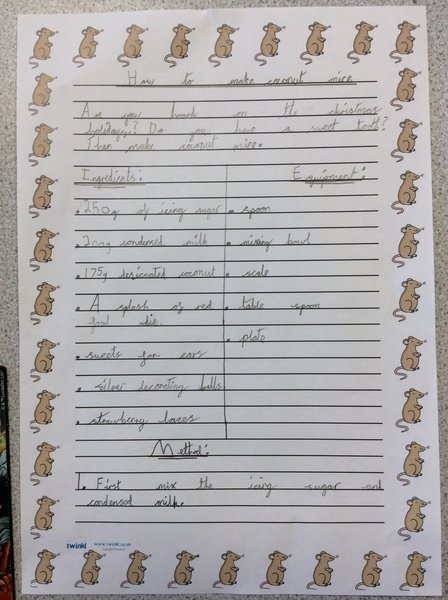 How to make coconut mice
Are you hoard on the christmas
holidays? Do you have a sweet tooth?
Then make coconut mice.
Ingredients:
Equipment:
250g of icing sugar
spoon
200g condensed milk
mixing bowl
175g desiccated coconut
scale
A splash of red
food die.
table spoon
plate
sweets for ears
silver decorating balls
strawberry laces
Method:
1. First mix the icing sugar and
condensed milk.
twinkl www.twinkl.co.uk